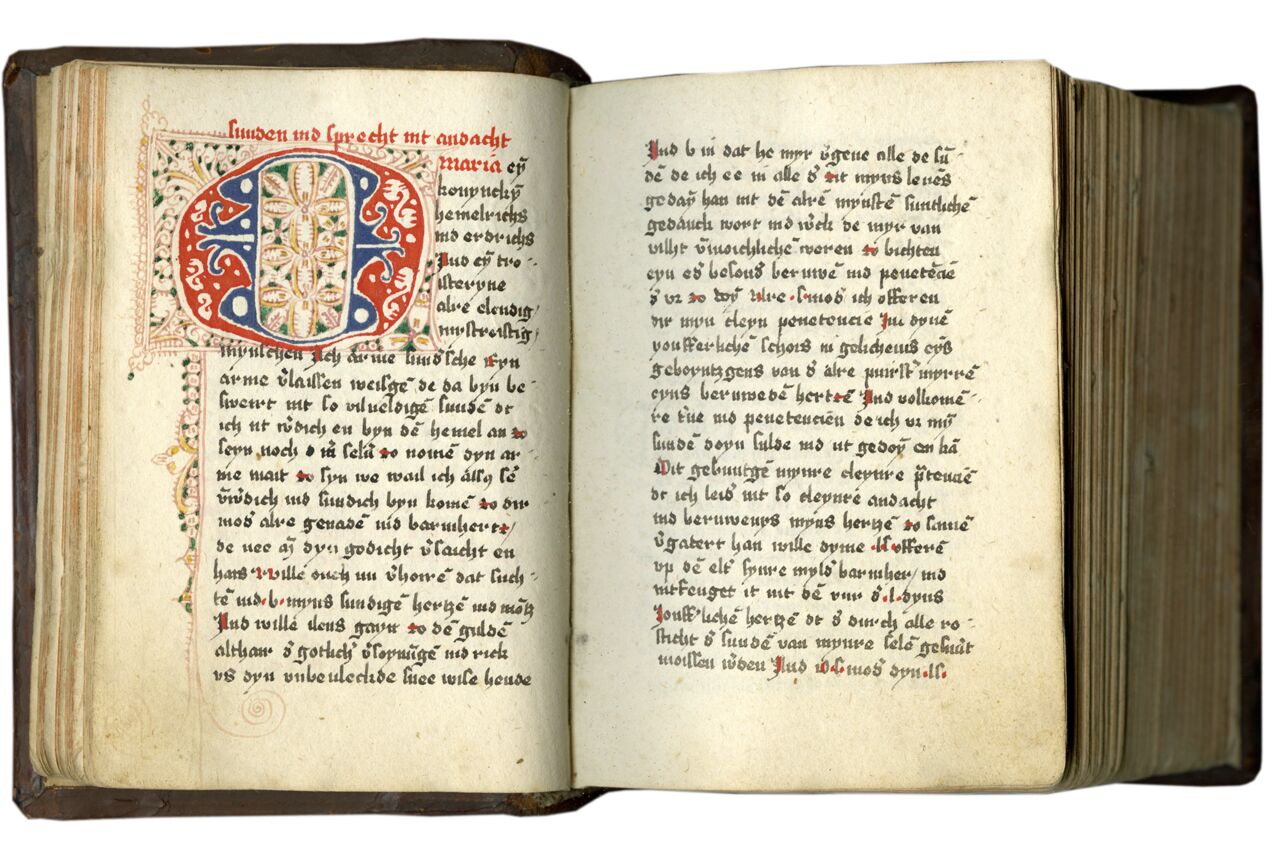 sunden ind sprecht mt andacht
maria eȳ
konynckȳ
hemelrichs
ind erdrichs
Ind eȳ tro-
isteryne
alre elendig/
mystroistig/
mynschen Ich arme sund'sche Eyn
arme v̄laissen weisgē de da byn be-
swert mt so vilueldigē sundē dt
ich nt w̄dich en byn dē hemel an zo
seyn noch d in selū zo nomē dyn ar-
me mait zo syn we wail ich
v̄w̄dich ind sundich byn komē zo dir
mod' alre genadē ind barmhertz/
de nee dyn godicht v̄saicht en
hais wille ouch nu v̄horē dat such-
tē ind b myns sundigē hertzē ind
Ind wille dens gayn zo dē guldē
althair d' gotlich' v̄soynūgē ind rick
vs dyn vnbeuleckde snee wise hende
Ind b in dat he myr v̄geue alle de su-
dē de ich ee in alle d' zit myns leuēs
gedaȳ han mt dē alrē mynstē suntlichē
gedāck wort ind w̄ck de myr van
villȳt v̄woichlichē weren zo bichten
eyn es besond' beruwē ind penetēcie
d' vr zo doȳ Alre .l. mod' ich offeren
dir myn cleyn penetencie Im dynē
youfferlichē schois in gelichenis eys
geboyntzgens van d' alre puirst' myrrē
eyns beruwedē hertzē Ind volkomē-
re ruwe ind penetenciēn de ich vr my
sundē doyn sulde ind nt gedoȳ en kā
Mit gebuntgē mynre cleynre p̄tēcien
dt ich leid' mt so cleynrē andacht
ind beruwenys myns hertzē zo samē
v̄gatert han wille dyme .ll. offerē
vp dē elt' synre myld' barmher/ ind
mt dē vnr d' .l. dyns
Jouff'lichē hertzē dt d' durch alle ro-
sticht d' sundē van mynre selē gebūt
moissen w̄den Ind o .l. mod' dyn .ll.